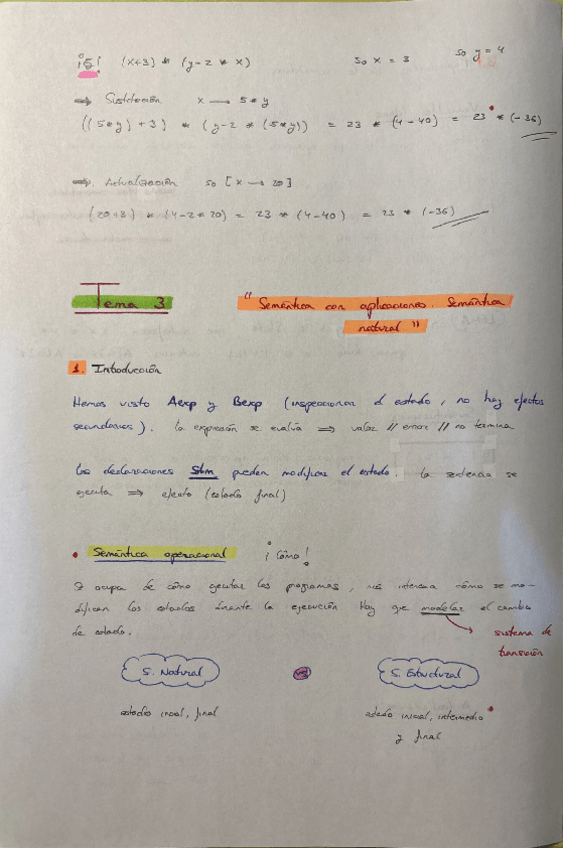 ¡5! (x+3) * (y-2 * x) so x = 3 so y = 4
⇒ Sustitución x → 5 * y
((5*y)+3) * (y-2 * (5*y)) = 23 * (4-40) = 23 * (-36)
⇒ Actualización so [x → 20]
(20+3) * (4-2*20) = 23 * (4-40) = 23 * (-36)
Tema 3 "Semántica con aplicaciones. Semántica
natural"
1. Introducción
Hemos visto Aexp y Bexp (inspeccionar el estado, no hay efectos
secundarios). La expresión se evalúa ⇒ valor // error // no termina
Las declaraciones Stm pueden modificar el estado. La sentencia se
ejecuta ⇒ efecto (estado final)
• Semántica operacional ¡Cómo!
Se ocupa de cómo ejecutar los programas, nos interesa cómo se mo-
difican los estados durante la ejecución. Hay que modelar el cambio
de estado.
sistema de
transición
S. Natural vs S. Estructural
estadio inicial, final estado inicial, intermedio
y final